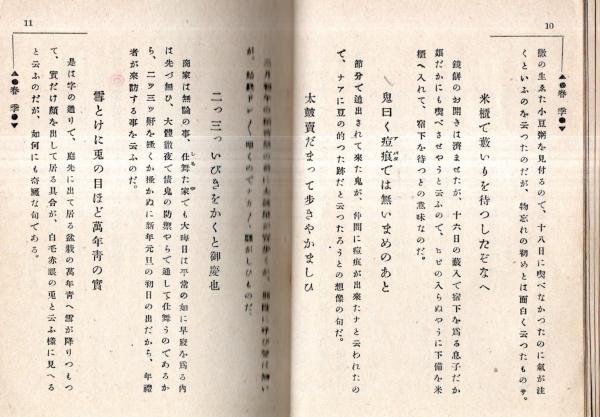 10
▲●春季●▼
黴の生ゑた小豆粥を見付るので、十八日に喫べなかつたのに氣が注
くといふのを云つたのだが、物忘れの初めとは面白く云つたものサ。
米櫃で藪いりを待つしたぞなへ
鏡餅のお開きは濟ませたが、十六日の藪入で宿下を爲る息子だか
孃だかにも喫べさせやうと云ふので、ヒビの入らぬやうに下備を米
櫃へ入れて、宿下を待つとの意味なのだ。
鬼曰く痘痕では無いまめのあと
アバタ
節分で逃出されて來た鬼が、仲間に痘痕が出來たナと云われたの
で、ナアに豆の的つた跡だと云つたろうとの想像の句だ。
太鼓賣だまって歩きやかましひ
11
▲●春季●▼
が、
ものだ。
二っ三っいびきをかくと御慶也
商家は無論の事、仕舞た家でも大晦日は平常の如に早寢を爲る内
しもや
は先づ無ひ、大體徹夜で債鬼の防禦やらで通して仕舞うのであるか
ら、二ッ三ッ鼾を搔くか搔かぬに新年元旦の初日の出だから、年禮
者が來訪する事を云ふのだ。
雪とけに兎の目ほど萬年青の實
是は字の通りで、庭先に出て居る盆栽の萬年青へ雪が降りつもつ
て、實だけ顏を出して居る具合が、白毛赤眼の兎と云ふ樣に見へる
と云ふのだが、如何にも奇麗な句である。